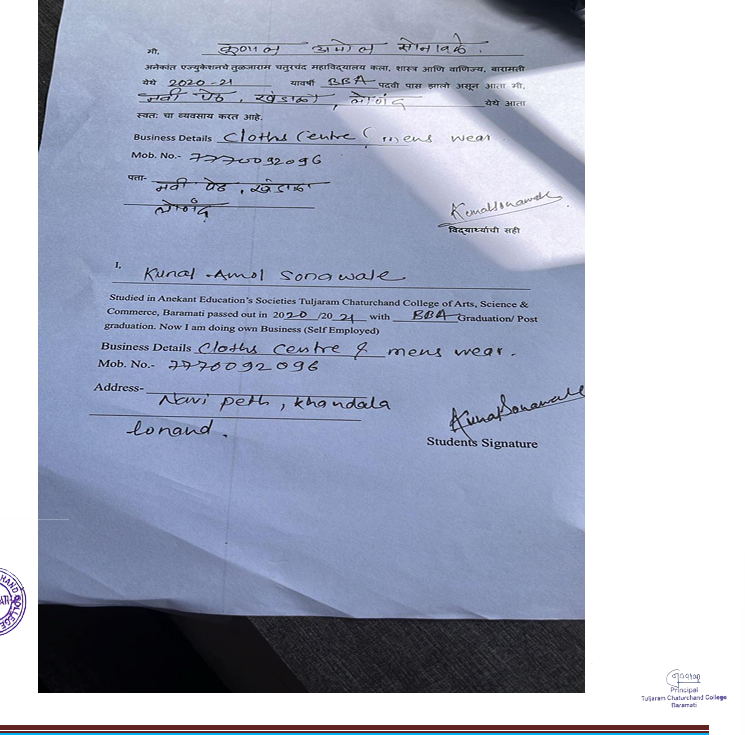 मी, कुणाल अमोल सोनवले.
अनेकांत एज्युकेशनचे तुळजाराम चतुरचंद महाविद्यालय कला, शास्त्र आणि वाणिज्य, बारामती
येथे 2020-21 यावर्षी BBA पदवी पास झालो असून आता मी,
नवी पेठ, खंडाळा, लोणंद येथे आता
स्वत: चा व्यवसाय करत आहे.
Business Details Cloths Centre ( mens wear
Mob. No.- 7770092096
पता- नवी पेठ, खंडाळा
लोणंद
KunalSonawale
विद्यार्थ्याची सही
I, Kunal Amol Sonawale
Studied in Anekant Education's Societies Tuljaram Chaturchand College of Arts, Science &
Commerce, Baramati passed out in 2020 /2021 with BBA Graduation/ Post
graduation. Now I am doing own Business (Self Employed)
Business Details Cloths Centre & mens wear.
Mob. No.- 7770092096
Address- Navi peth, khandala
lonand.
KunalSonawale
Students Signature
Principal
Tuljaram Chaturchand College
Baramati